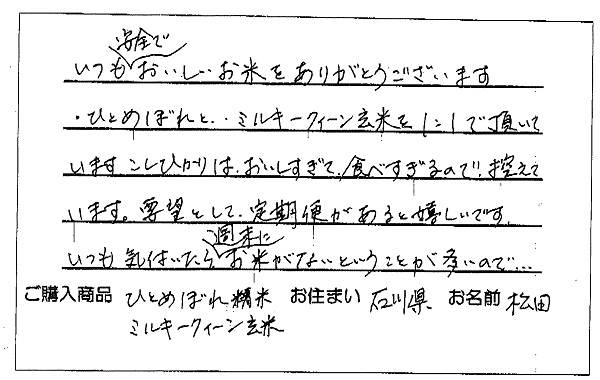 安全で
いつもおいしいお米をありがとうございます
・ひとめぼれと・・ミルキークィーン玄米を1:1で頂いて
います コシヒカリは、おいしすぎて、食べすぎるので、控えて
います。要望として、定期便があると嬉しいです。
週末に
いつも気付いたらお米がないということが多いので…
ご購入商品 ひとめぼれ精米 お住まい 石川県 お名前 松田
ミルキークィーン玄米